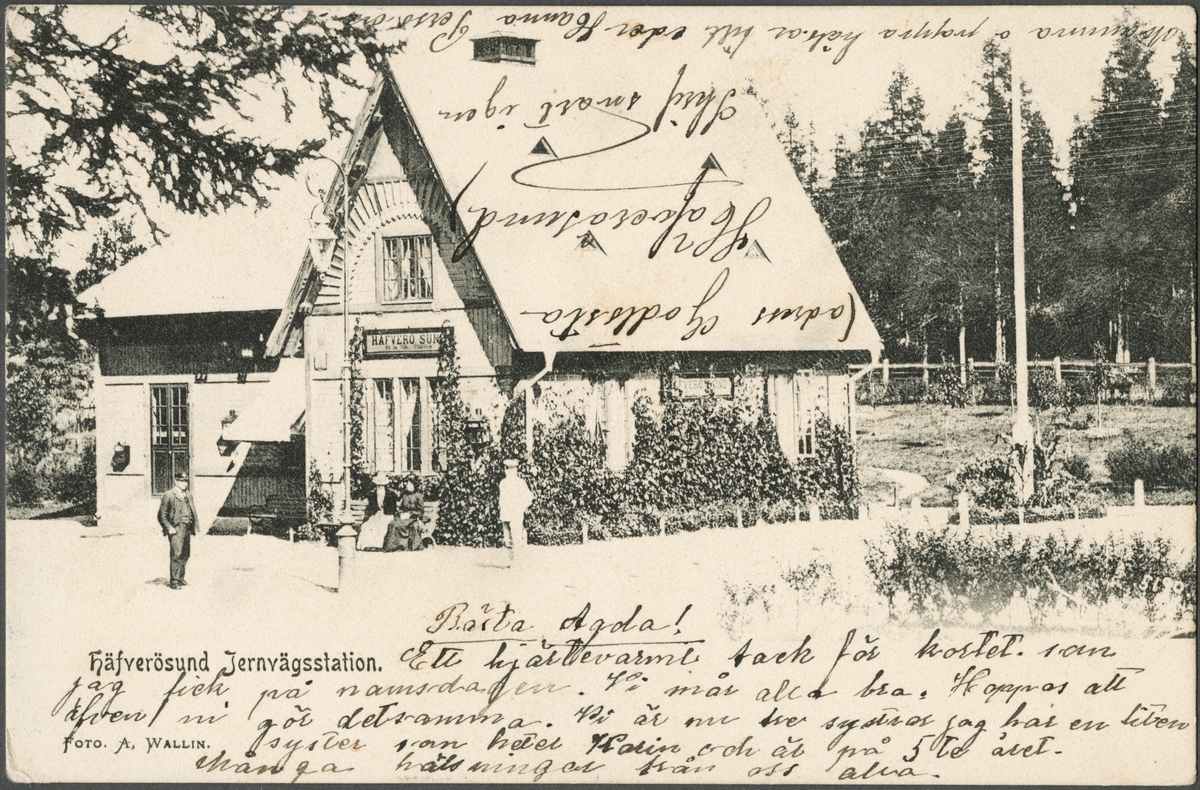 Mamma o pappa hälsar till eder Hanna Persson
Skrif snart igen
(adres Godösta
Häfverösund)
HÄFVERÖ SUND
HÄFVERÖSUND
Bästa Agda!
Häfverösund Jernvägsstation.
Ett hjärtevarmt tack för kortet. som
jag fick på namsdagen. Vi mår alla bra. Hoppas att
äfven ni gör detsamma. Vi är nu tre systrar jag har en liten
syster som heter Karin och är på 5te året.
Foto. A. Wallin.
Många hälsningar från oss alla.